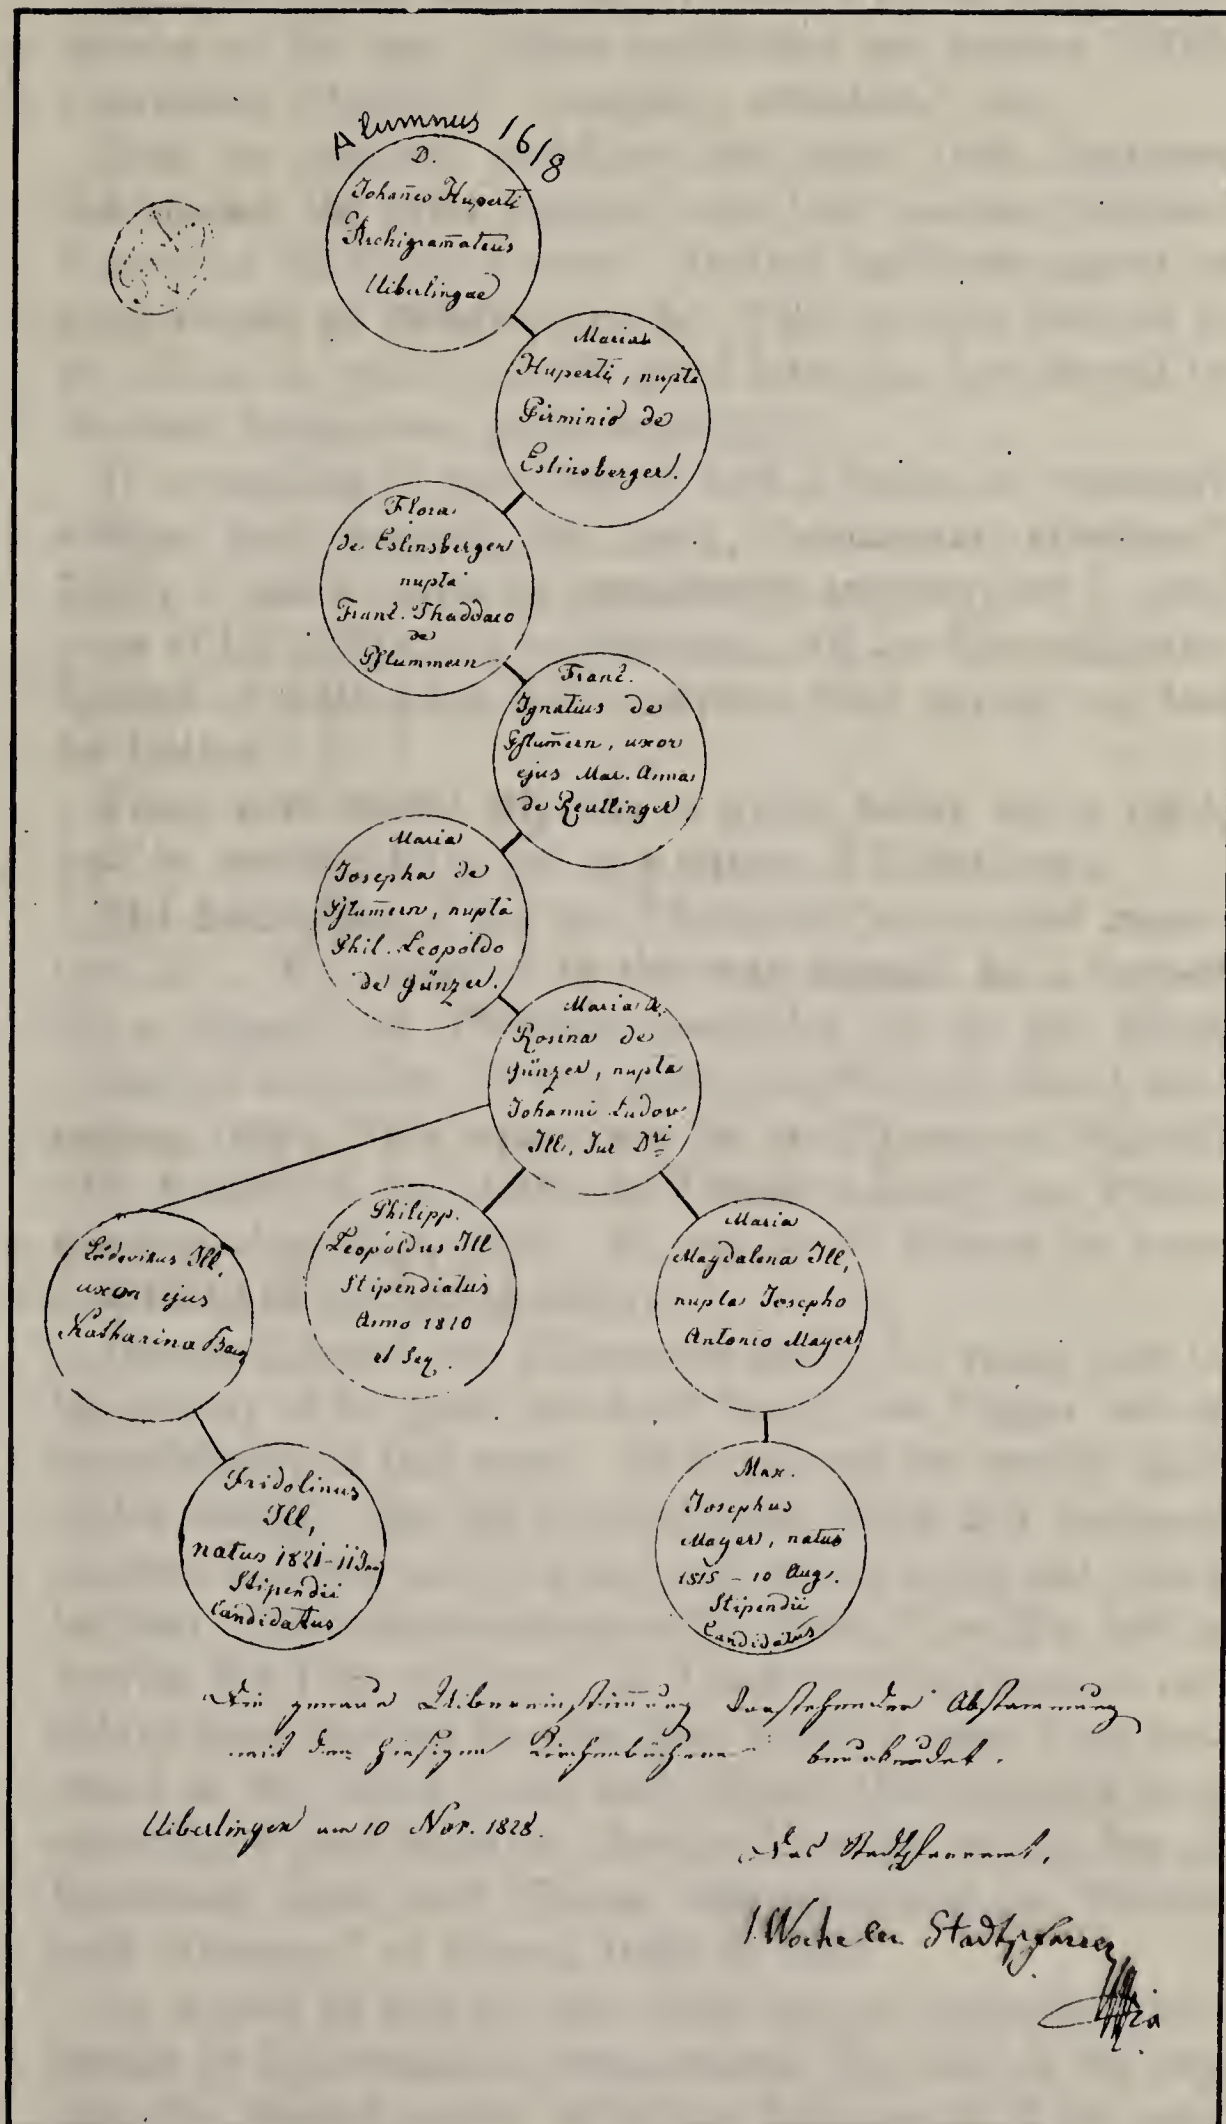 Alumnus 1618
D.
Johañes Huperti
Archigram̄ateus
Uiberlingae
Maria
Huperti, nupta
Firminio de
Eslinsberger.
Flora
de Eslinsberger
nupta
Franc. Thaddaeo
de
Pflummern
Franc.
Ignatius de
Pflum̄ern, uxor
ejus Mar. Anna
de Reutlinger
Maria
Josepha de
Pflum̄ern, nupta
Phil. Leopoldo
de Günzer.
Maria A.
Rosina de
Günzer, nupta
Johanni Ludov.
Ill, Jur Dri
Ludovikus Ill,
uxor ejus
Katharina
Philipp.
Leopoldus Ill
Stipendiatus
Anno 1810
et Seq.
Maria
Magdalena Ill,
nupta Josepho
Antonio Mayer
Fridolinus
Ill,
natus 1821 - 11 Jan
Stipendii
Candidatus
Max.
Josephus
Mayer, natus
1815 - 10 Aug.
Stipendii
Candidatus
Die genaue Uibereinstim̄ung vorstehender Abstammung
mit den hiesigen Kirchenbüchern beurkundet.
Uiberlingen am 10 Nov. 1828.
Das Stadtpfarramt.
Wocheler Stadtpfarrer